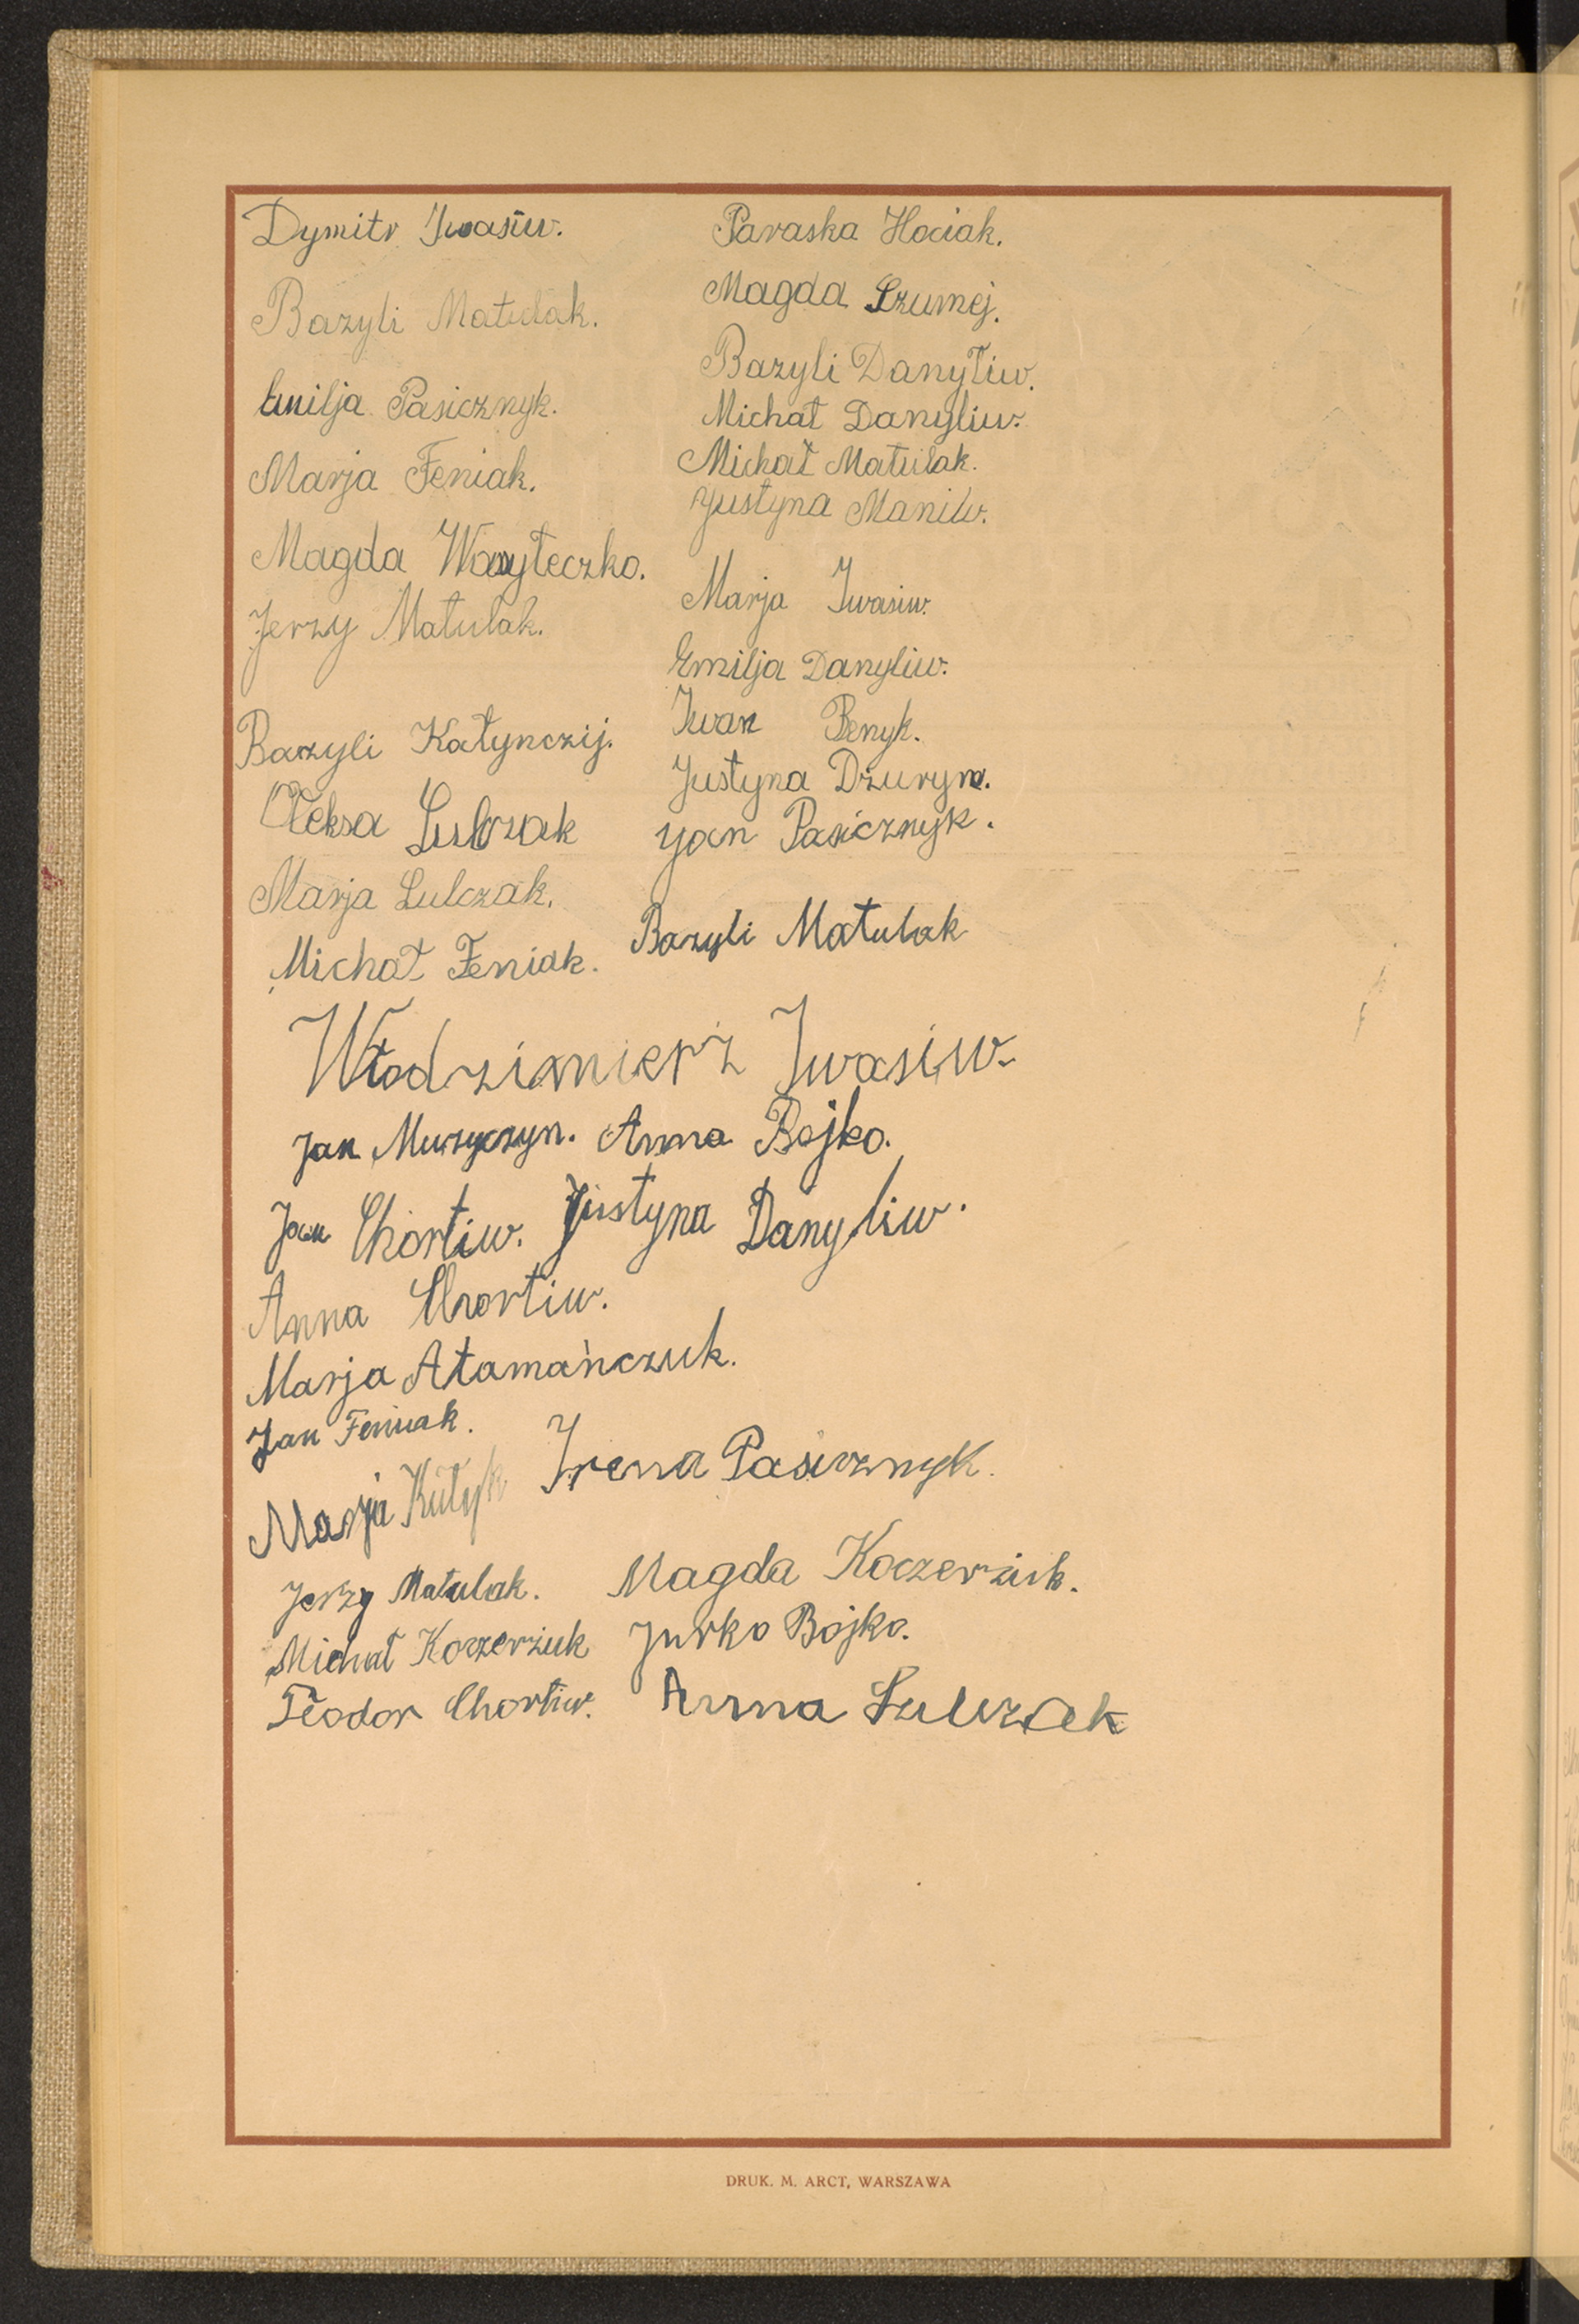 Dymitr Iwasiw.
Bazyli Matulak.
Emilja Pasicznyk.
Marja Feniak.
Magda
Jerzy Matulak.
Bazyli Kałynczij.
Ołeksa Lulczak
Marja Lulczak.
Michał Feniak.
Paraska Hociak.
Magda Szumej.
Bazyli Danyliw.
Michał Danyliw.
Michał Matulak.
Justyna Maniiw.
Marja Iwasiw.
Emilja Danyliw.
Iwan Benyk.
Justyna Dżuryn.
Jan Pasicznyk.
Bazyli Matulak
Włodzimierz Iwasiw.
Jan Muzyczyn. Anna Bojko.
Jan Chortiw. Justyna Danyliw.
Anna Chortiw.
Marja Atamańczuk.
Jan Feniak.
Marja Kułyk Irena Pasicznyk.
Jerzy Matulak. Magda Koczerżuk.
Michał Koczerżuk Jurko Bojko.
Teodor Chortiw. Anna Lulczak
DRUK. M. ARCT, WARSZAWA